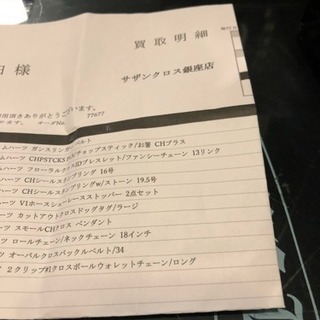 買取明細
田様
サザンクロス銀座店
出頂きありがとうございます。
ます。 オーダNo. 77677
ムハーツ ガンスリンガーベルト
ムハーツ CHPSTCKS チョップスティック/お箸 CHプラス
ムハーツ フローラルクロスIDブレスレット/ファンシーチェーン 13リンク
ハーツ CHシールスタンプリング 16号
ハーツ CHシールスタンプリングw/ストーン 19.5号
ハーツ V1ホースシューレースストッパー 2点セット
ーツ カットアウトクロスドッグタグ/ラージ
ーツ スモールCHクロス ペンダント
ーツ ロールチェーン/ネックチェーン 18インチ
ーツ オーバルクロスバックルベルト/34
ツ 2クリップ#1クロスボールウォレットチェーン/ロング